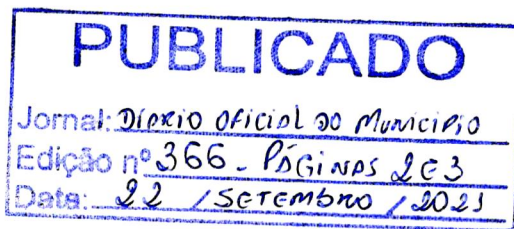 PUBLICADO
Jornal: Diário Oficial do Município
Edição nº 366 - PÁGINAS 2 E 3
Data: 22 / SETEMBRO / 2021